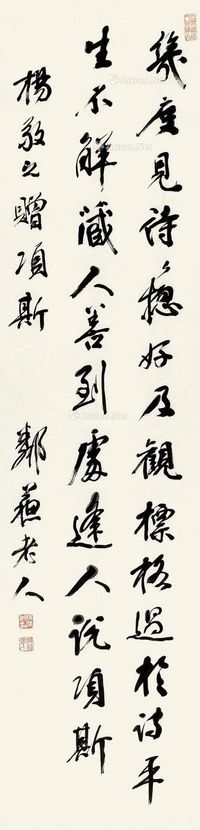 幾度見詩詩總好及觀標格過於詩平
生不解藏人善到處逢人說項斯
楊敬之贈項斯
鄰蘇老人